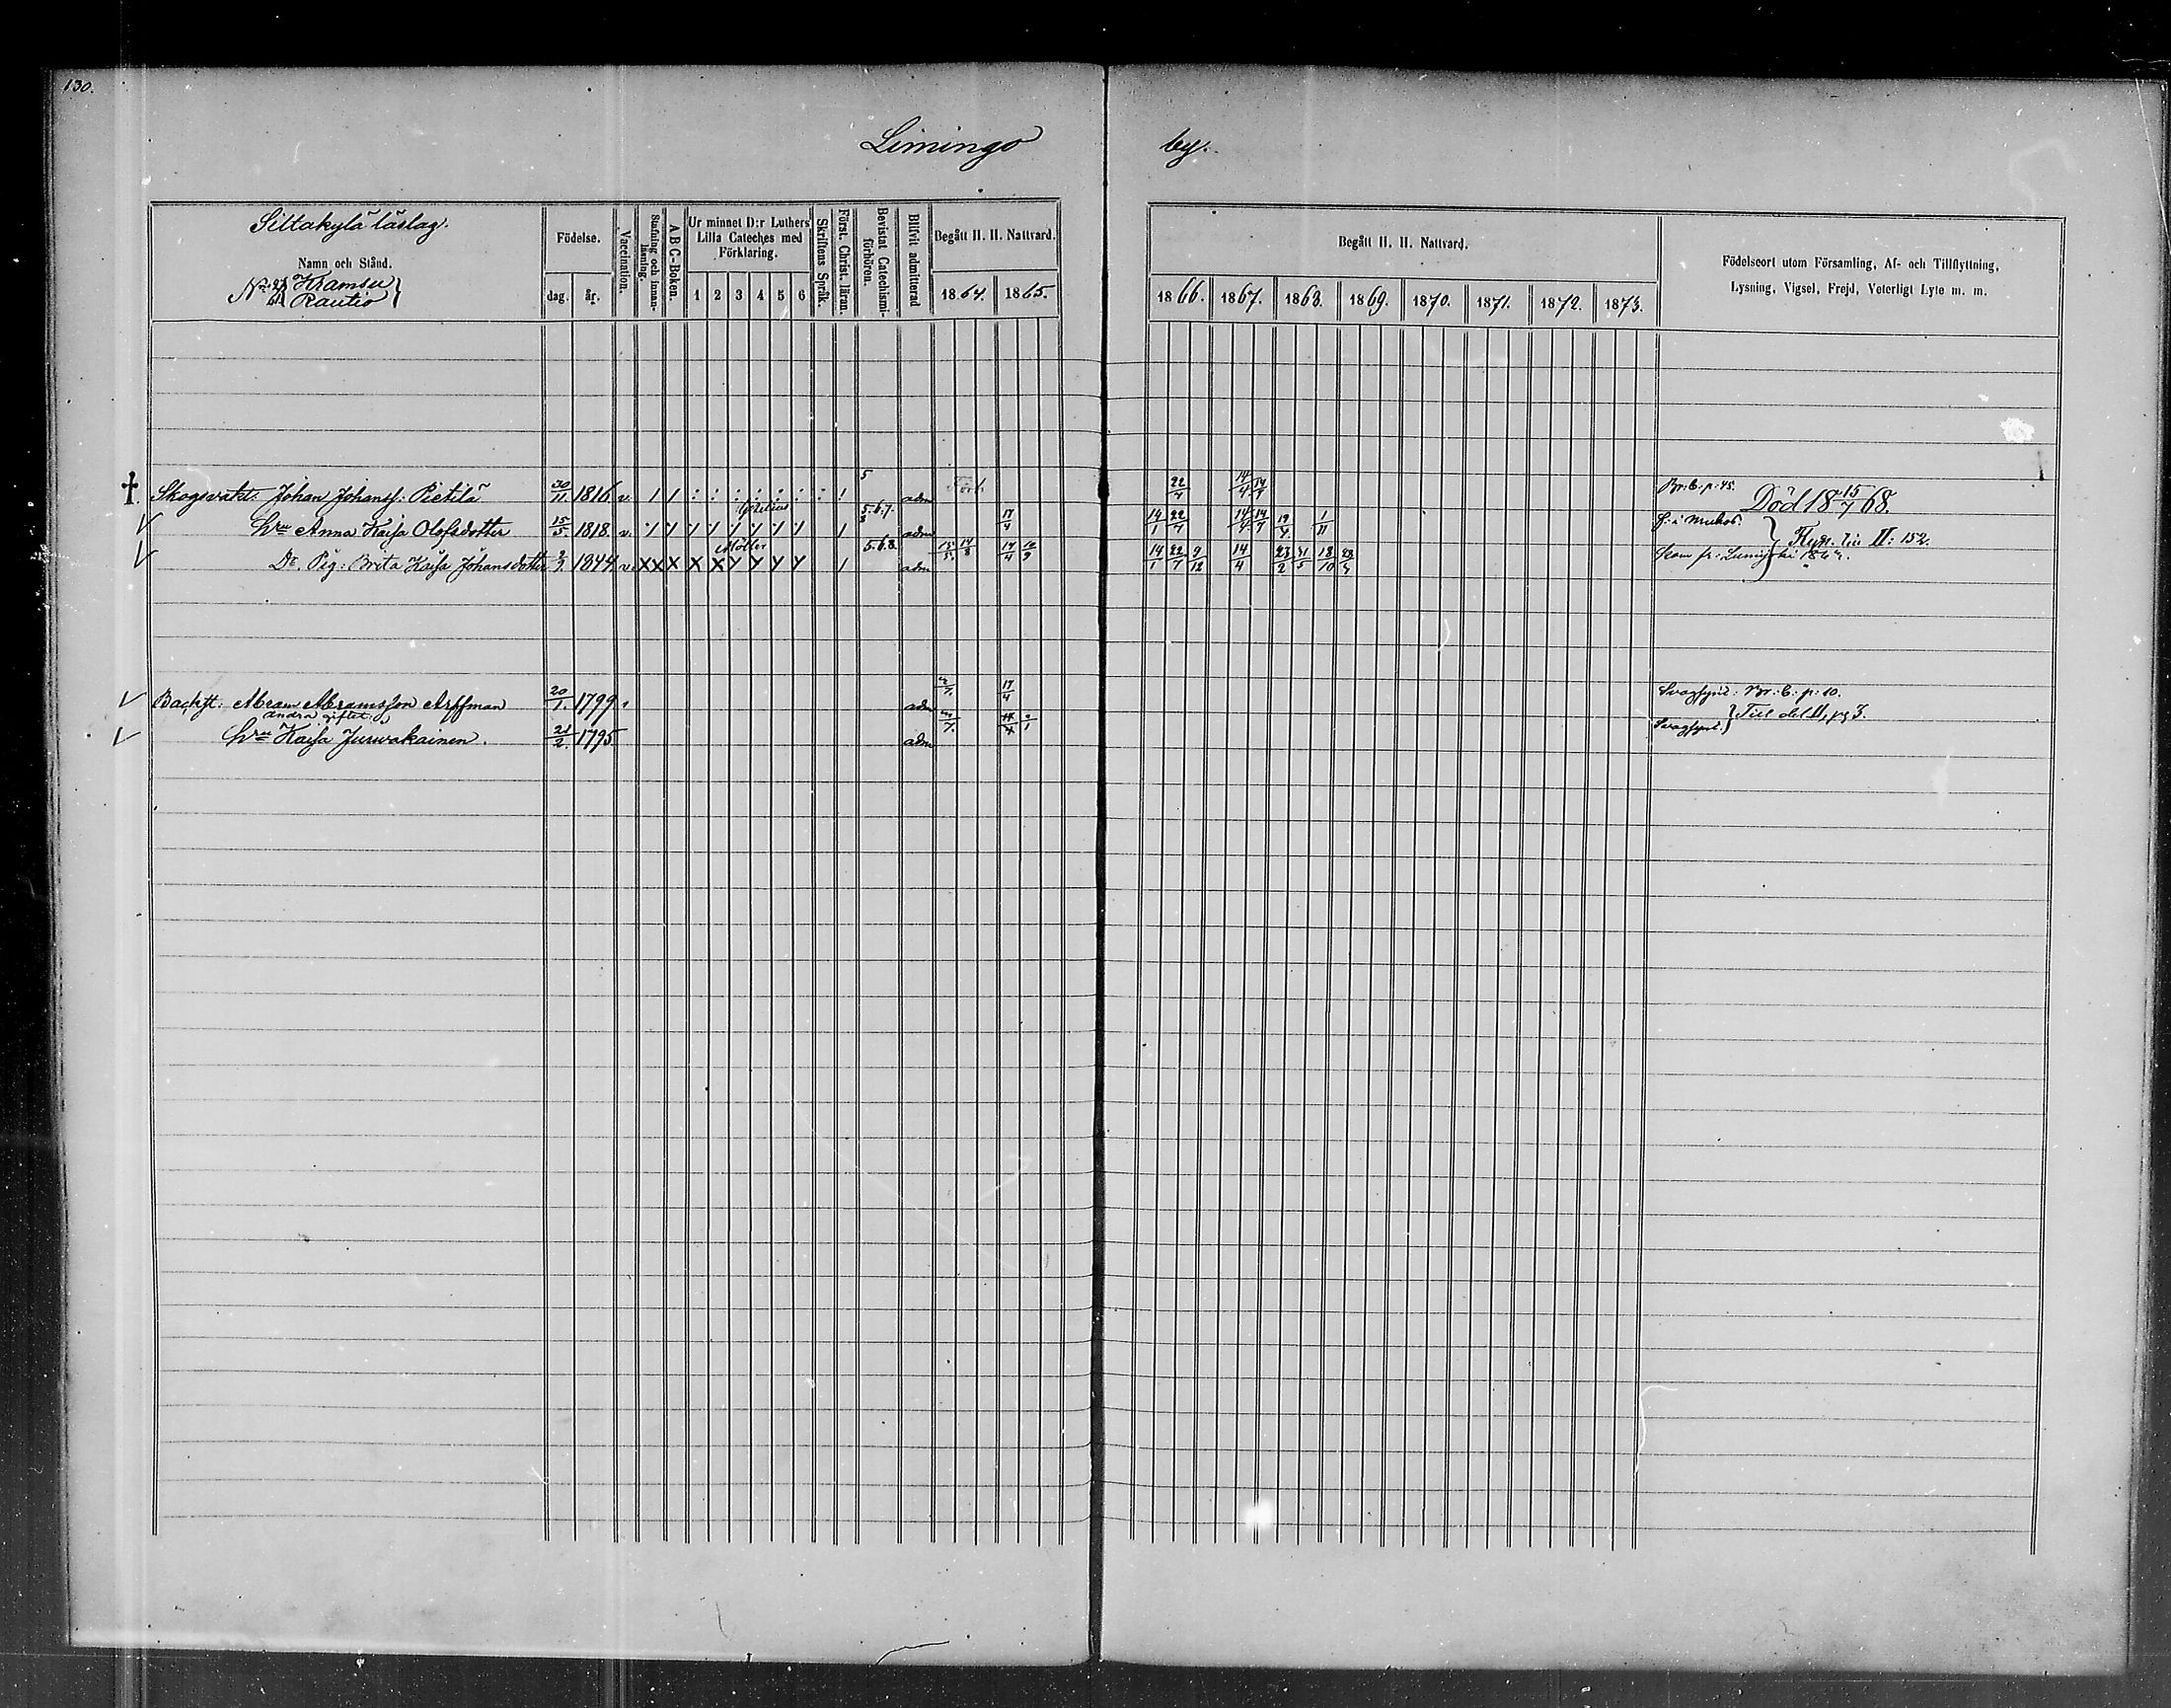 130.
Limingo by.
Siltakylä läslag.
Namn och Stånd.
Kramsu
Rautio
Födelse.
dag. år.
Vaccination.
Stafning och innan-läsning.
A B C-Boken.
Ur minnet D:r Luthers Lilla Cateches med Förklaring.
1 2 3 4 5 6
Skriftens Språk.
Först. Christ. läran.
Bevistat Catechismi-förhören.
Blifvit admitterad
Begått H. H. Nattvard.
1864. 1865.
Begått H. H. Nattvard.
1866. 1867. 1868. 1869. 1870. 1871. 1872. 1873.
Födelseort utom Församling, Af- och Tillflyttning,
Lysning, Vigsel, Frejd, Veterligt Lyte m. m.
† Skogsvakt. Johan Johanss: Pietilä 30/1. 1816 v. 1 1 : : : : : : : 1 5 adm 22/4 14/4 Br: b: p: 45. Död 18 15/7 68.
Hru Anna Kaisa Olofsdotter 15/5. 1818. v. 1 5.6.7. adm 17/4 14/1 22/7 14/4 14/7 19/4 1/11 f: i Muhos. Flytt. II: 152.
Möller
Dr. Pig: Brita Kaisa Johansdotter 1844. v. x x x x x y y y y 1 5.6.8. adm 14/8 17/4 14/1 22/7 9/12 14/4 23/2 31/5 18/10
Abram Abramsson Arffman 20/1. 1799 adm 17/4 Svagsynt: Br: b: p: 10.
andra giftet
Hru Kaisa Jurvakainen. 21/2. 1795 adm Svagsynt. Till del II, pg 3.